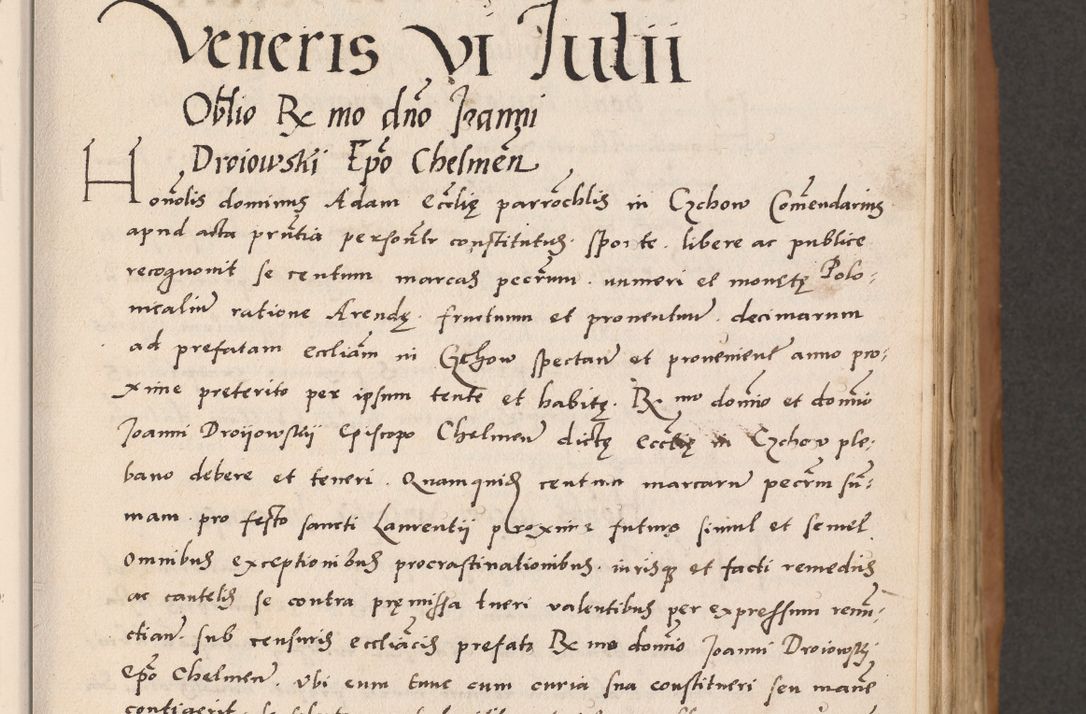 Veneris VI Iulii
Oblio Rx mo dno Joanni
Droiowski Epo Chelmen
Honolis dominus Adam Ecclię parrochlis in Czchow Comendarius
apud acta prntia personlr constitutus. sponte. libere ac publice
recognovit se centum marcas pecrum. numeri et monetę Polo:
nicaliu ratione Arendę. fructuum et proventuu. decimarum
ad prefatam eccliam in Czchow spectan et provenien anno pro:
xime preterito per ipsum tente et habitę. Rx mo domio et domio
Joanni Droiiowskii Episcopo Chelmen dictę Eccłę in Czchow ple:
bano debere et teneri. Quamquid centum marcaru pecrm sum:
mam. pro festo sancti Laurentii proxime futuro simul et semel.
Omnibus exceptionibus procrastinationibus. iurisque et facti remediis
ac cautelis se contra pręmissa tueri valentibus per expressum renu:
ctian. sub censuris eccliacis prefato Rx mo domio Joanni Droiowski
Epo Chelmen. Ubi eum tunc cum curia sua constitueri seu mane
contigerit